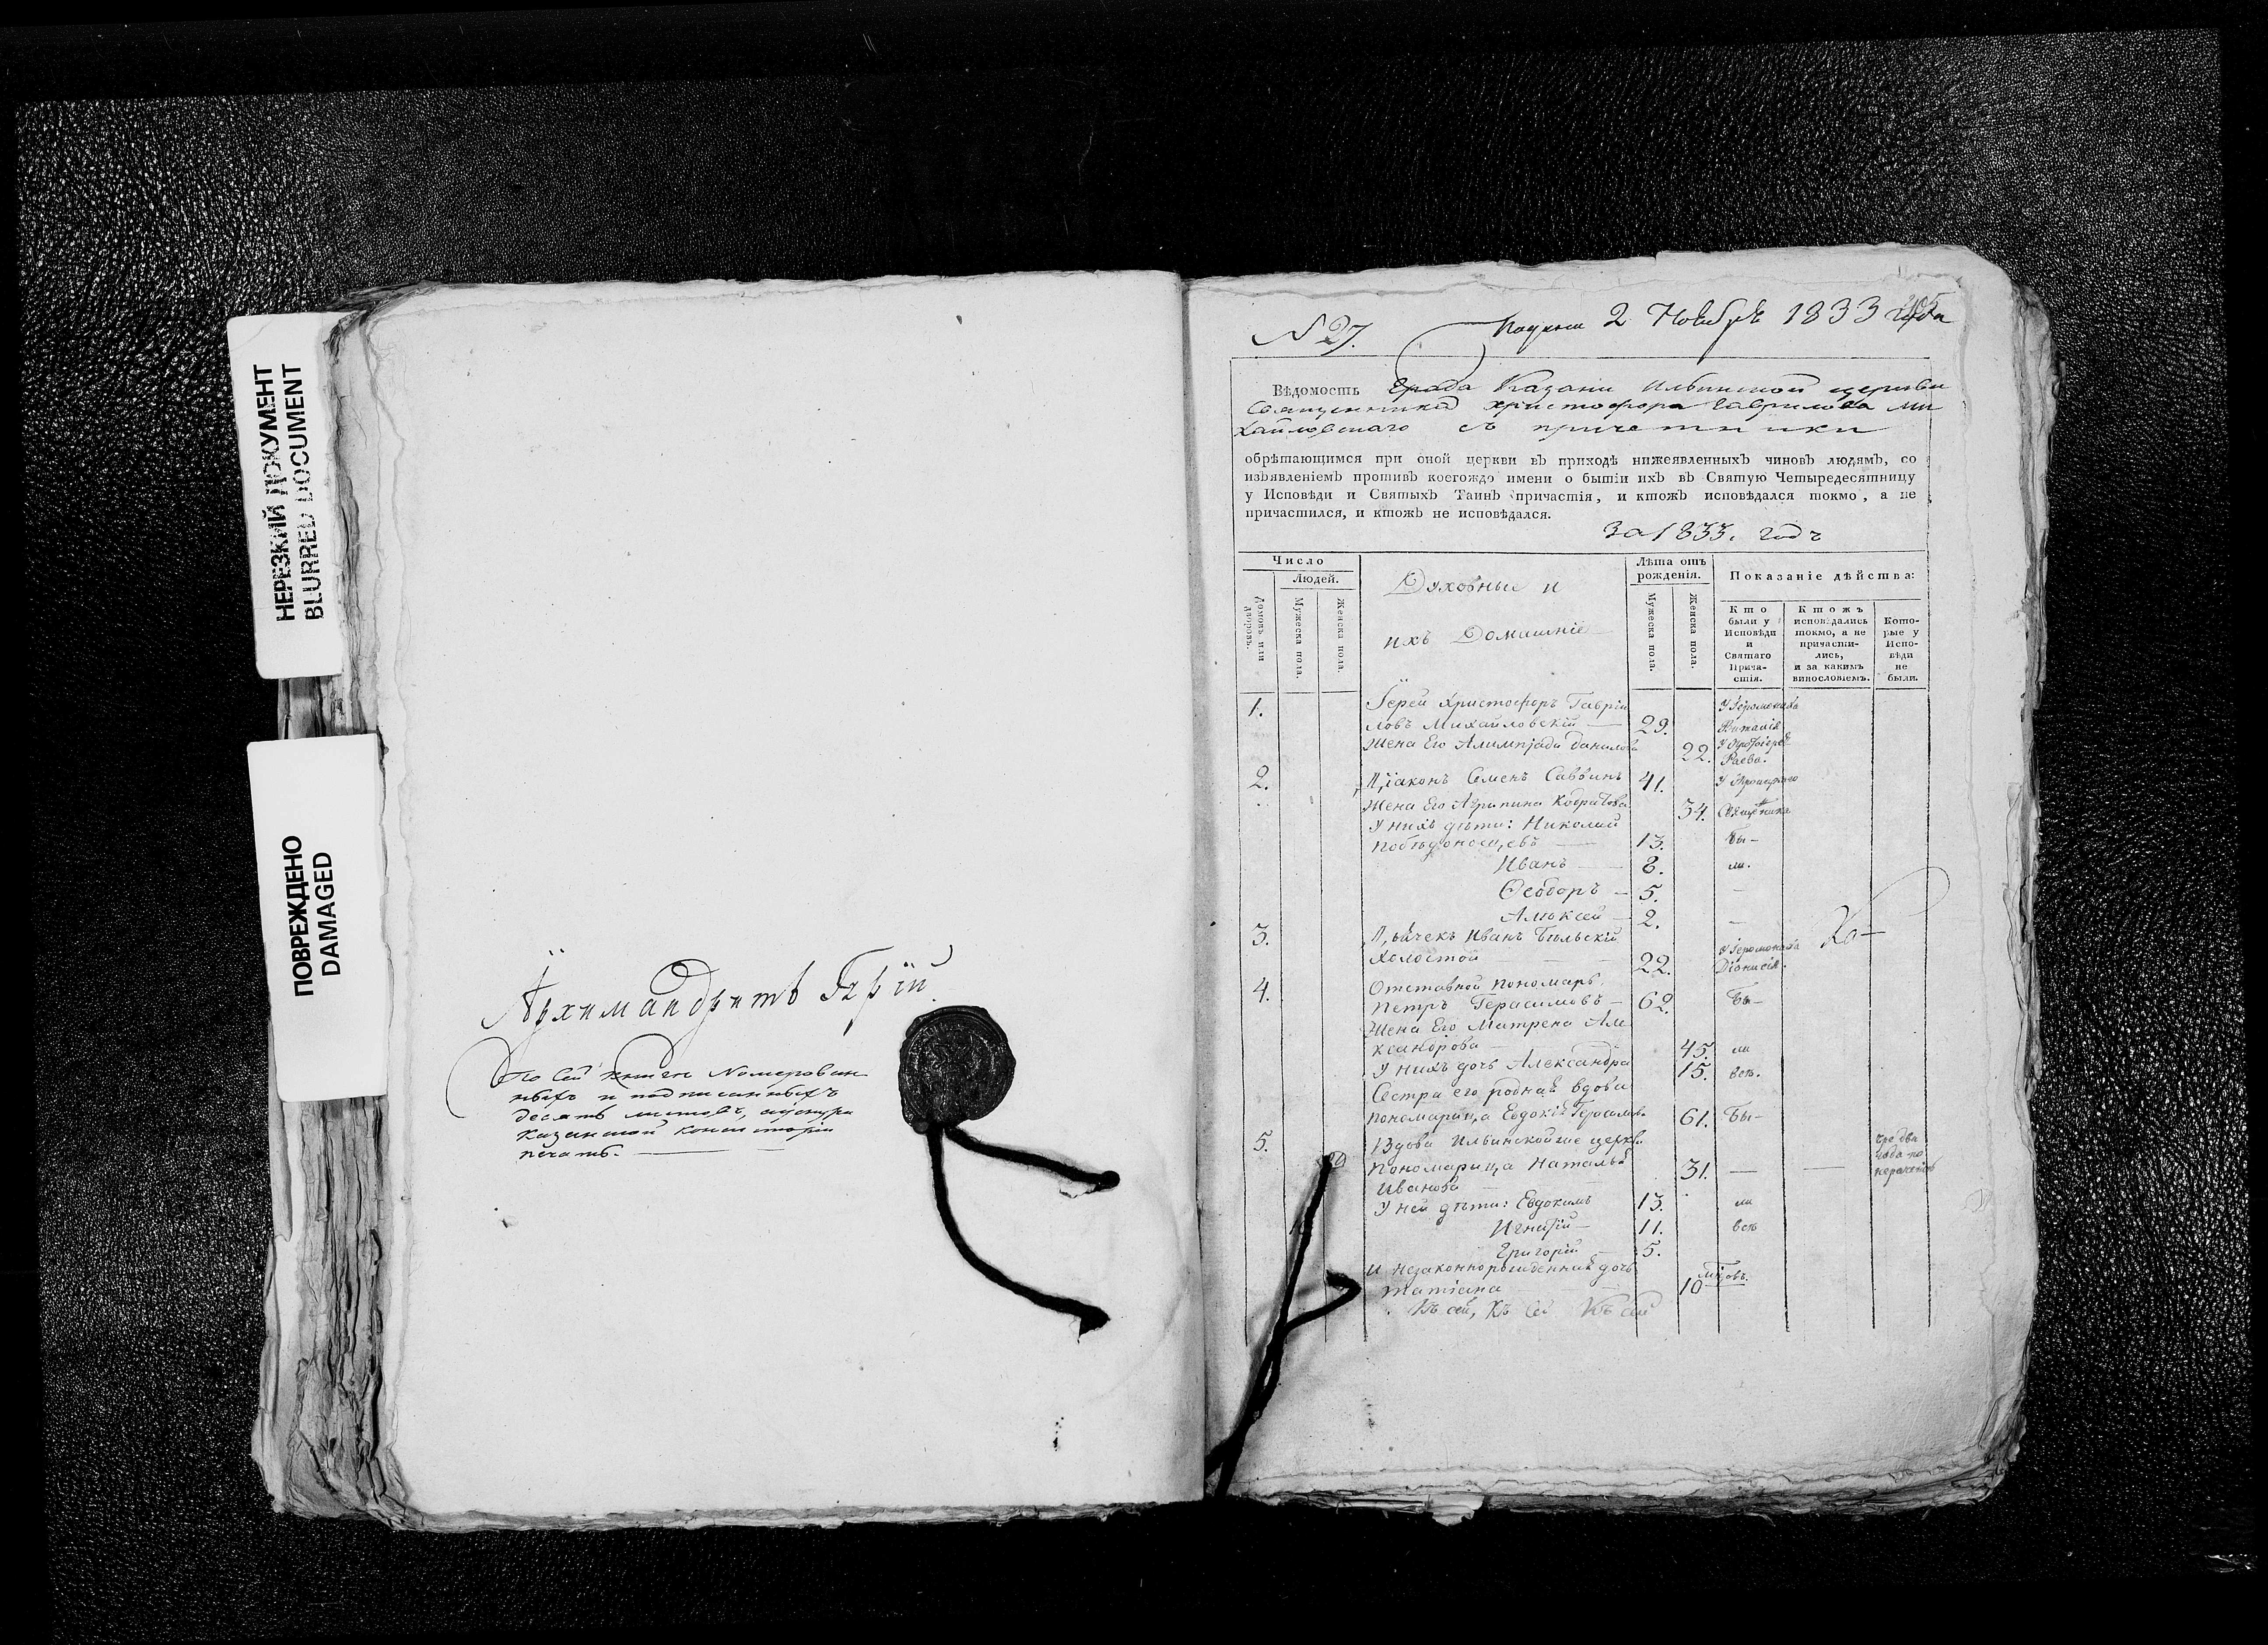 НЕРЕЗКИЙ ДОКУМЕНТ
BLURRED DOCUMENT
ПОВРЕЖДЕНО
DAMAGED
Архимандритъ
По сей книгѣ Номерован
ныхъ и подписанныхъ
десять листовъ, у шнура
Казанской консисторіи
печать.
N 27.
2 Ноября 1833 года
Вѣдомость Града Казани Ильинской церкви
Священника Христофора Гаврилова Ми
хайловскаго съ причетники
обрѣтающимся при оной церкви въ приходѣ нижеявленныхъ чиновъ людямъ, со
изъявленіемъ противъ коегождо имени о бытіи ихъ въ Святую Четыредесятницу
у Исповѣди и Святыхъ Таинъ причастія, и ктожъ исповѣдался токмо, а не
причастился, и ктожъ не исповѣдался.
За 1833. годъ
Число
Людей.
Домовъ или дворовъ.
Мужеска пола.
Женска пола.
Духовные и
ихъ Домашніе
Лѣта отъ рожденія.
Мужеска пола.
Женска пола.
Показаніе дѣйства:
Кто были у Исповѣди и Святаго Прича- стія.
Ктожъ исповѣдались токмо, а не причасти- лись, и за какимъ винословіемъ.
Кото- рые у Испо- вѣди не были.
1. Іерей Христофоръ Гаврі У Іеромонаха
ловъ Михайловскій — 29. Виталія
Жена Его Алимпіада Данилова 22. У Протоіерея
Раева.
2. Діаконъ Семенъ Саввинъ 41. У Троицкаго
Жена Его Агрипина 34. Священника
У нихъ дѣти: Николай
Побѣдоносцевъ — 13. Бы-
Иванъ — 8. ли.
Ѳеодоръ — 5. —
Алюксей — 2. —
3. Дьячекъ Иванъ Бѣльскій
холостой — 22. У Іеромонаха Діонисія.
4. Отставной пономарь
Петръ Герасимовъ — 62. Бы-
Жена Его Матрена Але
ксандрова — 45. ли
У нихъ дочь Александра 15. всѣ.
Сестра его родная вдова
пономарица Евдокія Герасимова 61. Бы-
5. Вдова Ильинской же церкви
Пономарица Наталья 31. — —
Иванова
У ней дѣти: Евдокимъ 13. ли
Игнатій — 11. всѣ
Григорій — 5.
и незаконнорожденная дочь
татіана 10 мѣсяцовъ.